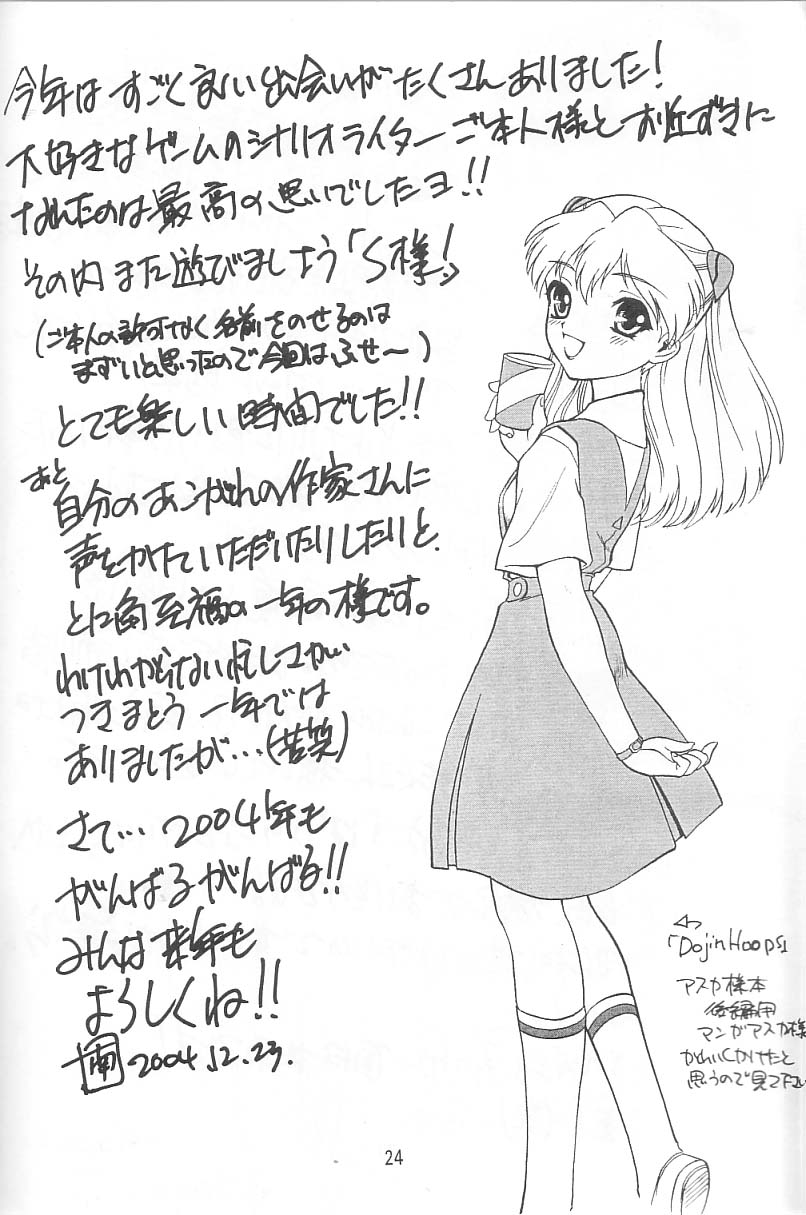 今年はすごく良い出会いがたくさんありました!
大好きなゲームのシナリオライターご本人様とお近ずきに
なれたのは最高の思いでしたヨ!!
その内また遊びましょう「S様!」
(ご本人の許可なく名前をのせるのは
まずいと思ったので今回はふせ〜)
とても楽しい時間でした!!
あと
自分のあこがれの作家さんに
声をかけていただいたりしたりと、
とに角至福の一年の様です。
わけわからない忙しさがい
つきまとう一年では
ありましたが…(苦笑)
さて…2004年も
がんばるがんばる!!
みんな来年も
よろしくね!!
南 2004.12.23.
「DojinHoops」
アスカ様本
後編用
マンガアスカ様
かわいくかけたと
思うので見て下い
24